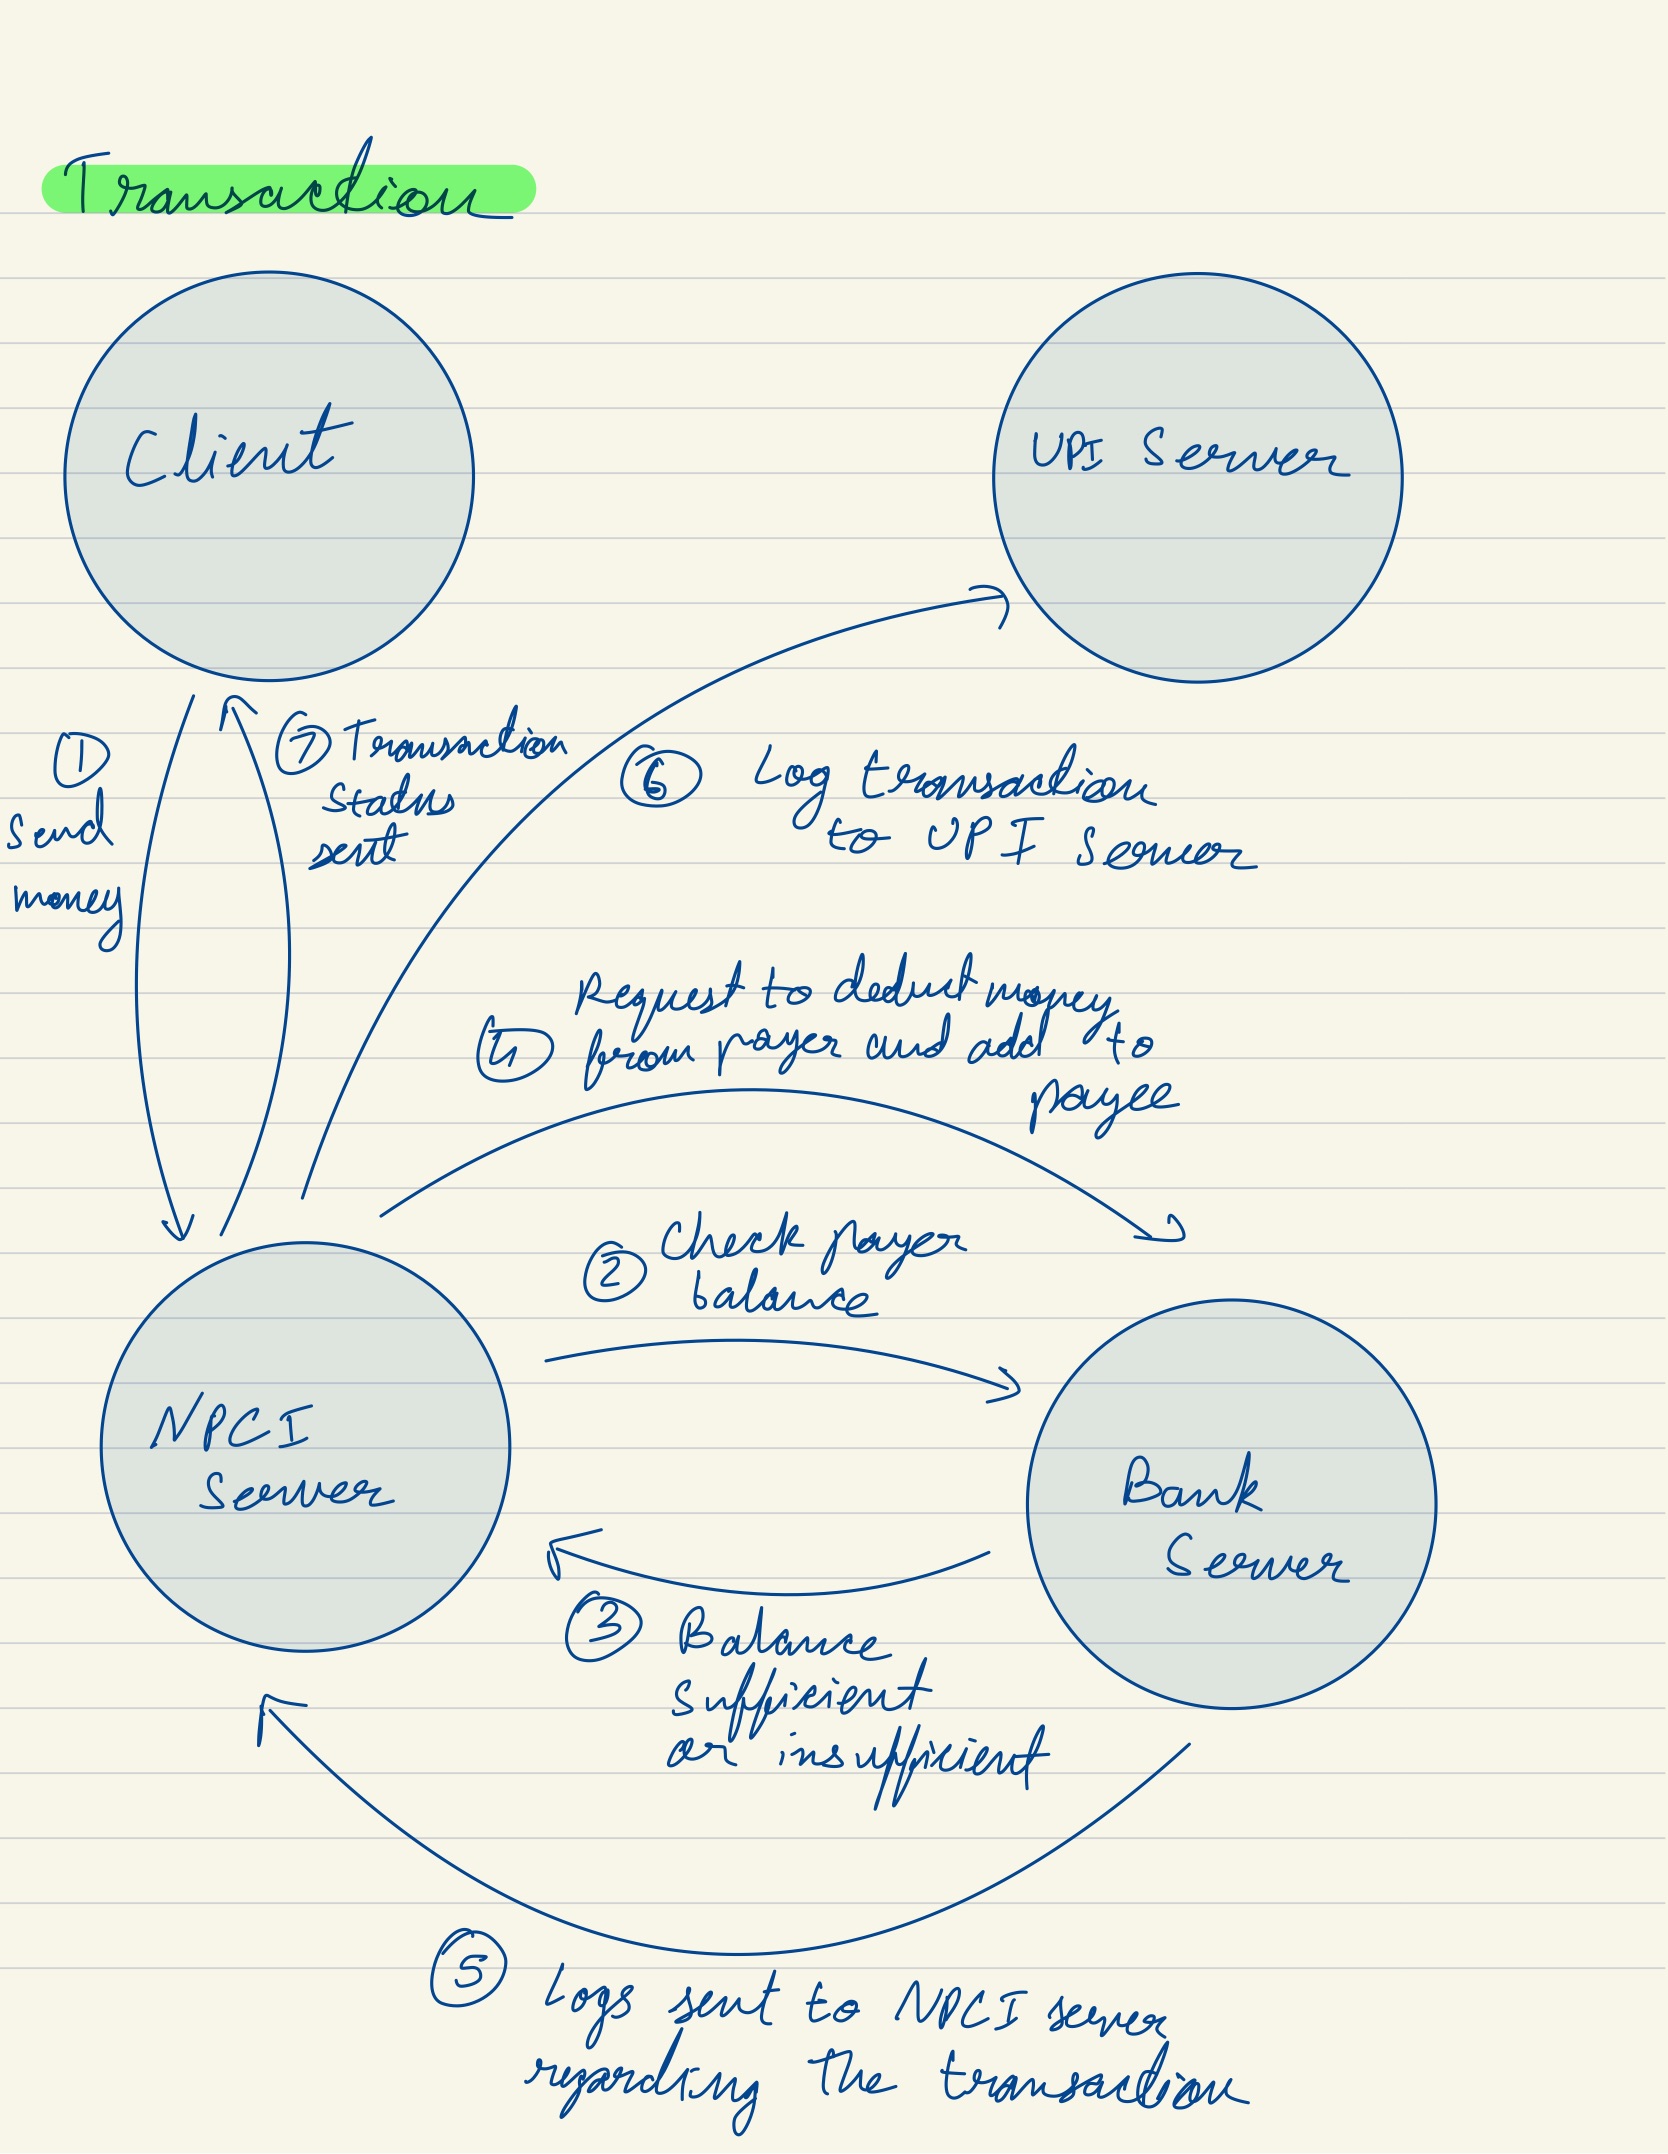 Transaction
Client
UPI Server
① Send
money
⑦ Transaction
status
sent
⑥ Log transaction
to UPI Server
Request to deduct money
④ from payer and add to
payee
② Check payer
balance
NPCI
Server
Bank
Server
③ Balance
sufficient
or insufficient
⑤ Logs sent to NPCI server
regarding the transaction